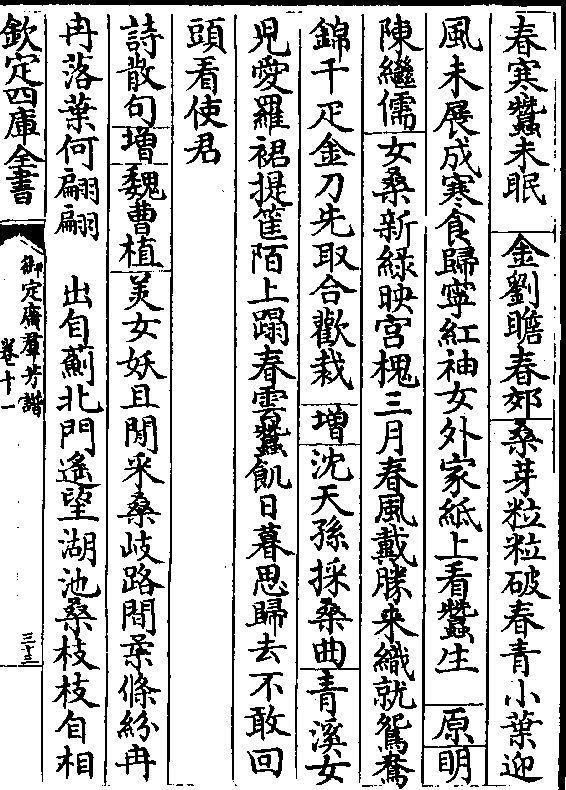 春寒蠶未眠　金劉瞻春郊桑芽粒粒破春青小葉迎
風未展成寒食歸寧紅袖女外家紙上看蠶生　原明
陳繼儒女桑新緑映宫槐三月春風戴勝来織就鴛鴦
錦千疋金刀先取合歡裁　増沈天孫採桑曲青溪女
兒愛羅裙提筐陌上蹋春雲蠶飢日暮思歸去不敢回
頭看使君
詩散句増魏曹植美女妖且閒采桑岐路間葉條紛冉
冉落葉何翩翩　出自薊北門遙望湖池桑枝枝自相
欽定四庫全書
御定廣羣芳譜
卷十一
三十三